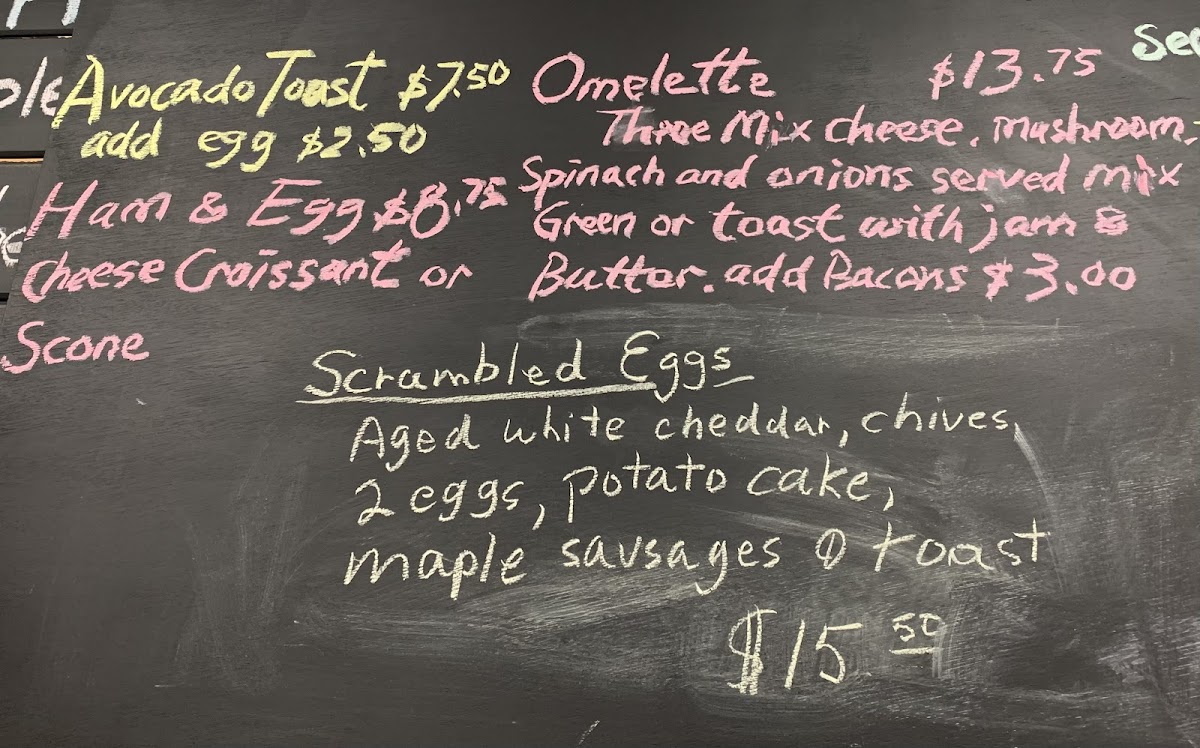 Avocado Toast $7.50
add egg $2.50
Ham & Egg $8.75
Cheese Croissant or
Scone
Omelette $13.75
Three Mix cheese, mushroom,
Spinach and onions served mix
Green or toast with jam &
Butter. add Bacons $3.00
Scrambled Eggs
Aged white cheddar, chives,
2 eggs, potato cake,
maple sausages & toast
$15 50